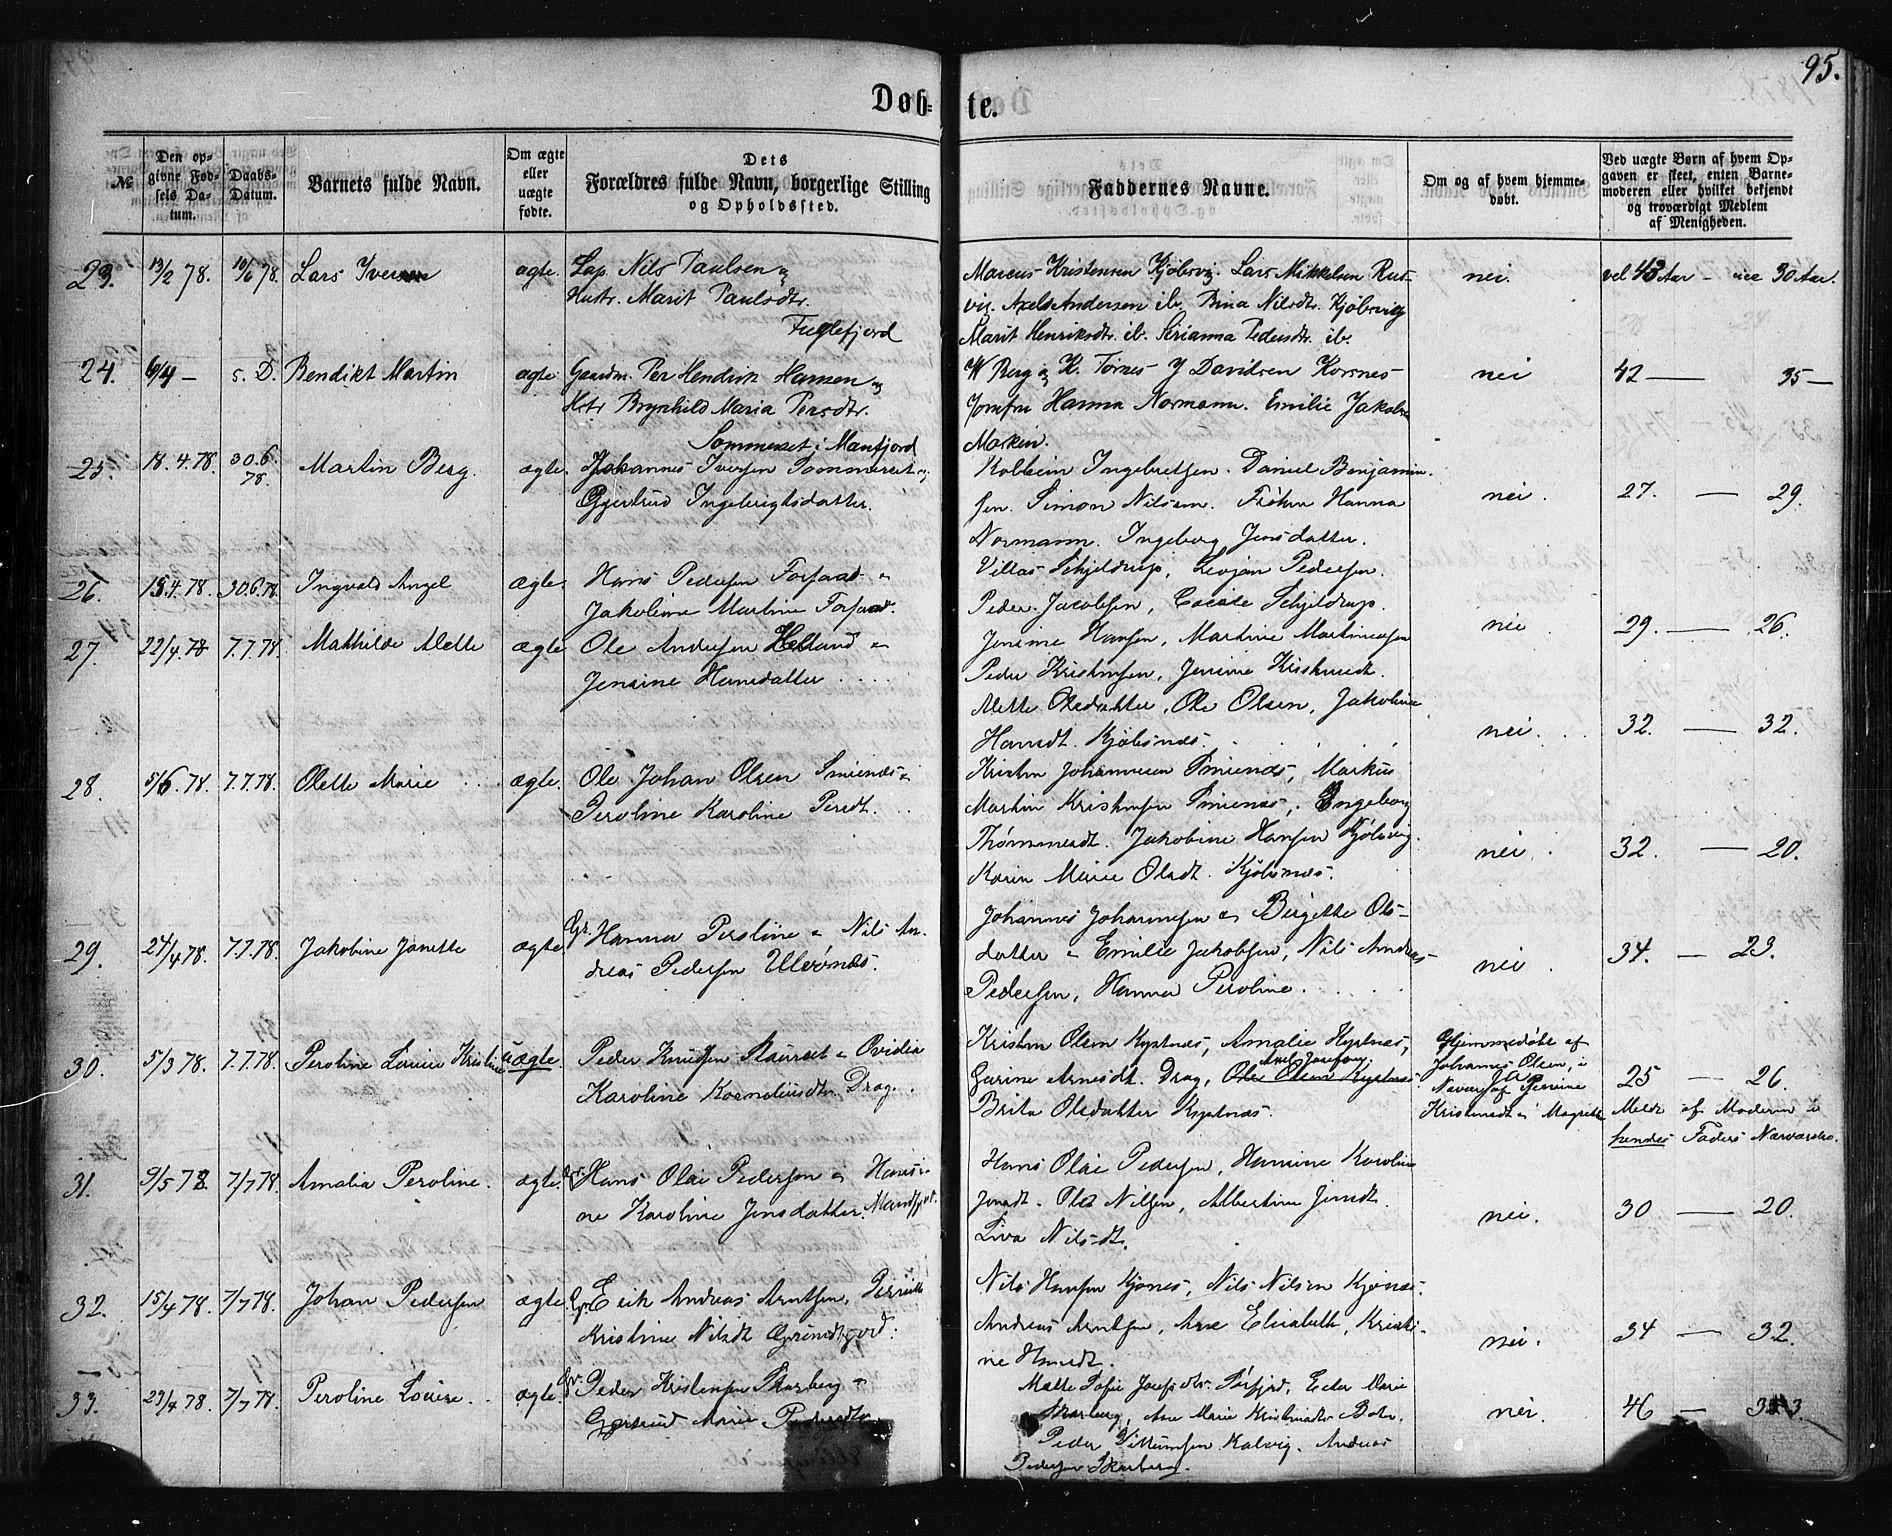 95.
Døb= te.
№
Den op-
givne Fød-
sels Da-
tum.
Daabs-
Datum.
Barnets fulde Navn.
Om ægte
eller
uægte
fødte.
Dets
Forældres fulde Navn, borgerlige Stilling
og Opholdssted.
Faddernes Navne.
Om og af hvem hjemme-
døbt.
Ved uægte Børn af hvem Op-
gaven er skeet, enten Barne-
moderen eller hvilket bekjendt
og troværdigt Medlem
af Menigheden.
23. 13/2 78. 10/6 78. Lars Iversen ægte. Lap. Nils Paulsen og
Hustr. Marit Paulsdtr.
Fuglefjord
Marcus Kristensen Kjøbsvig. Lars Mikkelsen Rus-
vig. Axel Andersen ib. Bina Nilsdtr. Kjøbsvig
Marit Henriksdtr ib. Serianna Pedersdtr. ib.
nei. vel 43 Aar – 30 Aar.
24. 6/4 — s. D. Bendikt Martin ægte Gaardm. Per Hendrik Hansen og
Hstr Brynhild Maria Persdtr.
Sommerset i Manfjord
W Berg og K. Tornes J Davidsen Korsnes
Jomfru Hanna Normann. Emilie Jakobs
nei 42 — 35 —
25. 18. 4. 78. 30. 6. 78. Martin Berg. ægte. Johannes Iversen Sommerset og
Gjertrud Ingebrigtsdatter.
Kolbein Ingebretsen. Daniel Benjamin
sen. Simon Nilsen. Frøken Hanna
Normann. Ingeborg Jensdatter.
nei. 27. — 29.
26. 18.4.78. 30.6.78. Ingvald Angel ægte. Hans Pedersen Forsaa
Jakobine Martine Forsaa.
Villas Schjeldrup, Peder Pedersen.
Peder Jacobsen, Schjeldrup.
Jensine Hansen, Martine Martinussen
nei. 29. — 26.
27. 22/4. 78 7.7.78. Mathilde Alette ægte Ole Andersen Helland
Jensine Hansdatter
Peder Kristensen, Jensine Kristensdt.
Alette Olsdatter, Ole Olsen, Jakobine
Hansdt. Kjøbsnæs.
nei. 32. — 32.
28. 5/6. 78. 7.7.78. Olette Marie ægte. Ole Johan Olsen
Peroline Karoline Persdt.
Kristen Johannesen Markus
Martin Kristensen Ingeborg
Jakobine Hansen Kjøbsvig.
Karen Marie Olsdt. Kjøbsnæs.
nei. 32. — 20.
29. 24/4 78. 7.7.78. Jakobine Janette ægte. Gr. Hanna Peroline Nils An-
dreas Pedersen Ulvønæs.
Johannes Johannesen Birgette Ols-
datter Emilie Jakobsen, Nils Andreas
Pedersen, Hanna Peroline.
nei. 34. — 23.
30. 5/3 78. 7.7.78. Peroline Lovise Kristine uægte. Peder Knudsen Ovidia
Karoline Korneliusdtr. Drag.
Kristen Olsen Kystnæs, Amalie Kystnæs,
Gurine Arnesdt. Drag, Ole Olsen Kystnæs
Brita Olsdatter Kystnæs.
Hjemmedøbt af
Johannes Olsen, i
25 — 26.
Meldt af Moderen i
hendes Faders Nærværelse.
31. 9/5 78. 7/7 78. Amalia Peroline. ægte. Gr. Hans Olai Pedersen Hansi-
ne Karoline Jensdatter.
Hans Olai Pedersen, Hansine Karoline
Jensdt. Nilsen, Albertine Jensdt.
Liva Nilsdt.
nei. 30 — 20.
32. 15/4 78. 7/7 78. Johan Pedersen ægte. Gr. Erik Andreas Arntsen,
Kristine Nilsdt Grundfjord.
Nils Hansen Kjønes, Nils Nilsen Kjønæs.
Andreas Arntsen, Ane Elisabeth, Kristi-
ne Hansdt.
nei. 34 — 32.
33. 23/4 78. 7/7 78. Peroline Lovise. ægte. Gr. Peder Kristensen Skarberg
Gjertrud Marie Pedersdtr.
Mette Sofie Josefsdtr. Sørfjord, Marie
Skarberg, Ane Marie
Peder Kalvig. Andreas
Pedersen Skarberg.
nei. 46 — 33.